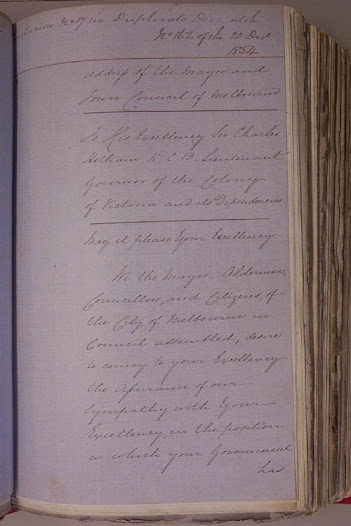 Enclosure No 17 in Duplicate Despatch
No 162 of the 20 Decr
1854
Address of the Mayor and
Town Council of Melbourne
To His Excellency Sir Charles
Hotham K C B. Lieutenant
Governor of the Colony
of Victoria and its Dependencies
May it please Your Excellency
We the Mayor, Aldermen,
Councillors, and Citizens, of
the City of Melbourne in
Council assembled, desire
to convey to your Excellency
the assurance of our
sympathy with Your
Excellency, in the position
in which your Government
has